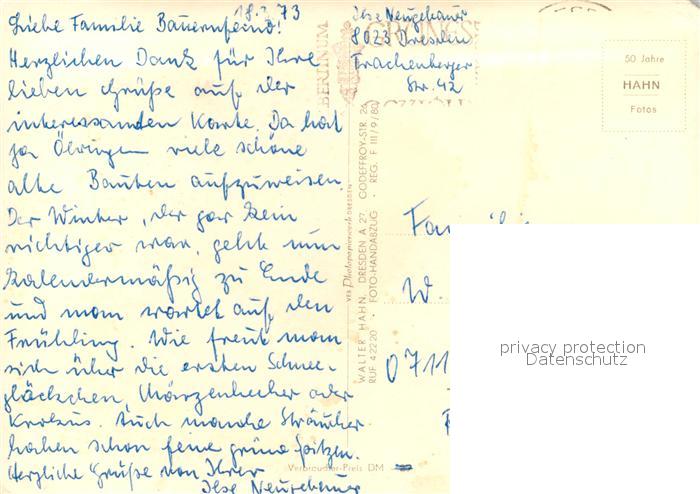 18.3.73
Liebe Familie Bauernfeind!
Herzlichen Dank für Ihre
lieben Grüße auf der
interessanten Karte. Da hat
ja Öhringen viele schöne
alte Bauten aufzuweisen.
Der Winter, der gar kein
richtiger war, geht nun
kalendermäßig zu Ende
und man wartet auf den
Frühling. Wie freut man
sich über die ersten Schnee-
glöckchen, Märzenbecher oder
Krokus. Auch manche Sträucher
haben schon feine grüne Spitzen.
Herzliche Grüße von Ihrer
Ilse Neugebauer
Ilse Neugebauer
8023 Dresden
Trachenberger
Str. 42
BERTINUM
VEB Photopapierwerk DRESDEN
WALTER HAHN, DRESDEN A 27, GODEFFROY-STR. 26
RUF 42220 · FOTO-HANDABZUG · REG. F III/9/80
50 Jahre
HAHN
Fotos
W.
0711
Verbraucher-Preis DM
privacy protection
Datenschutz